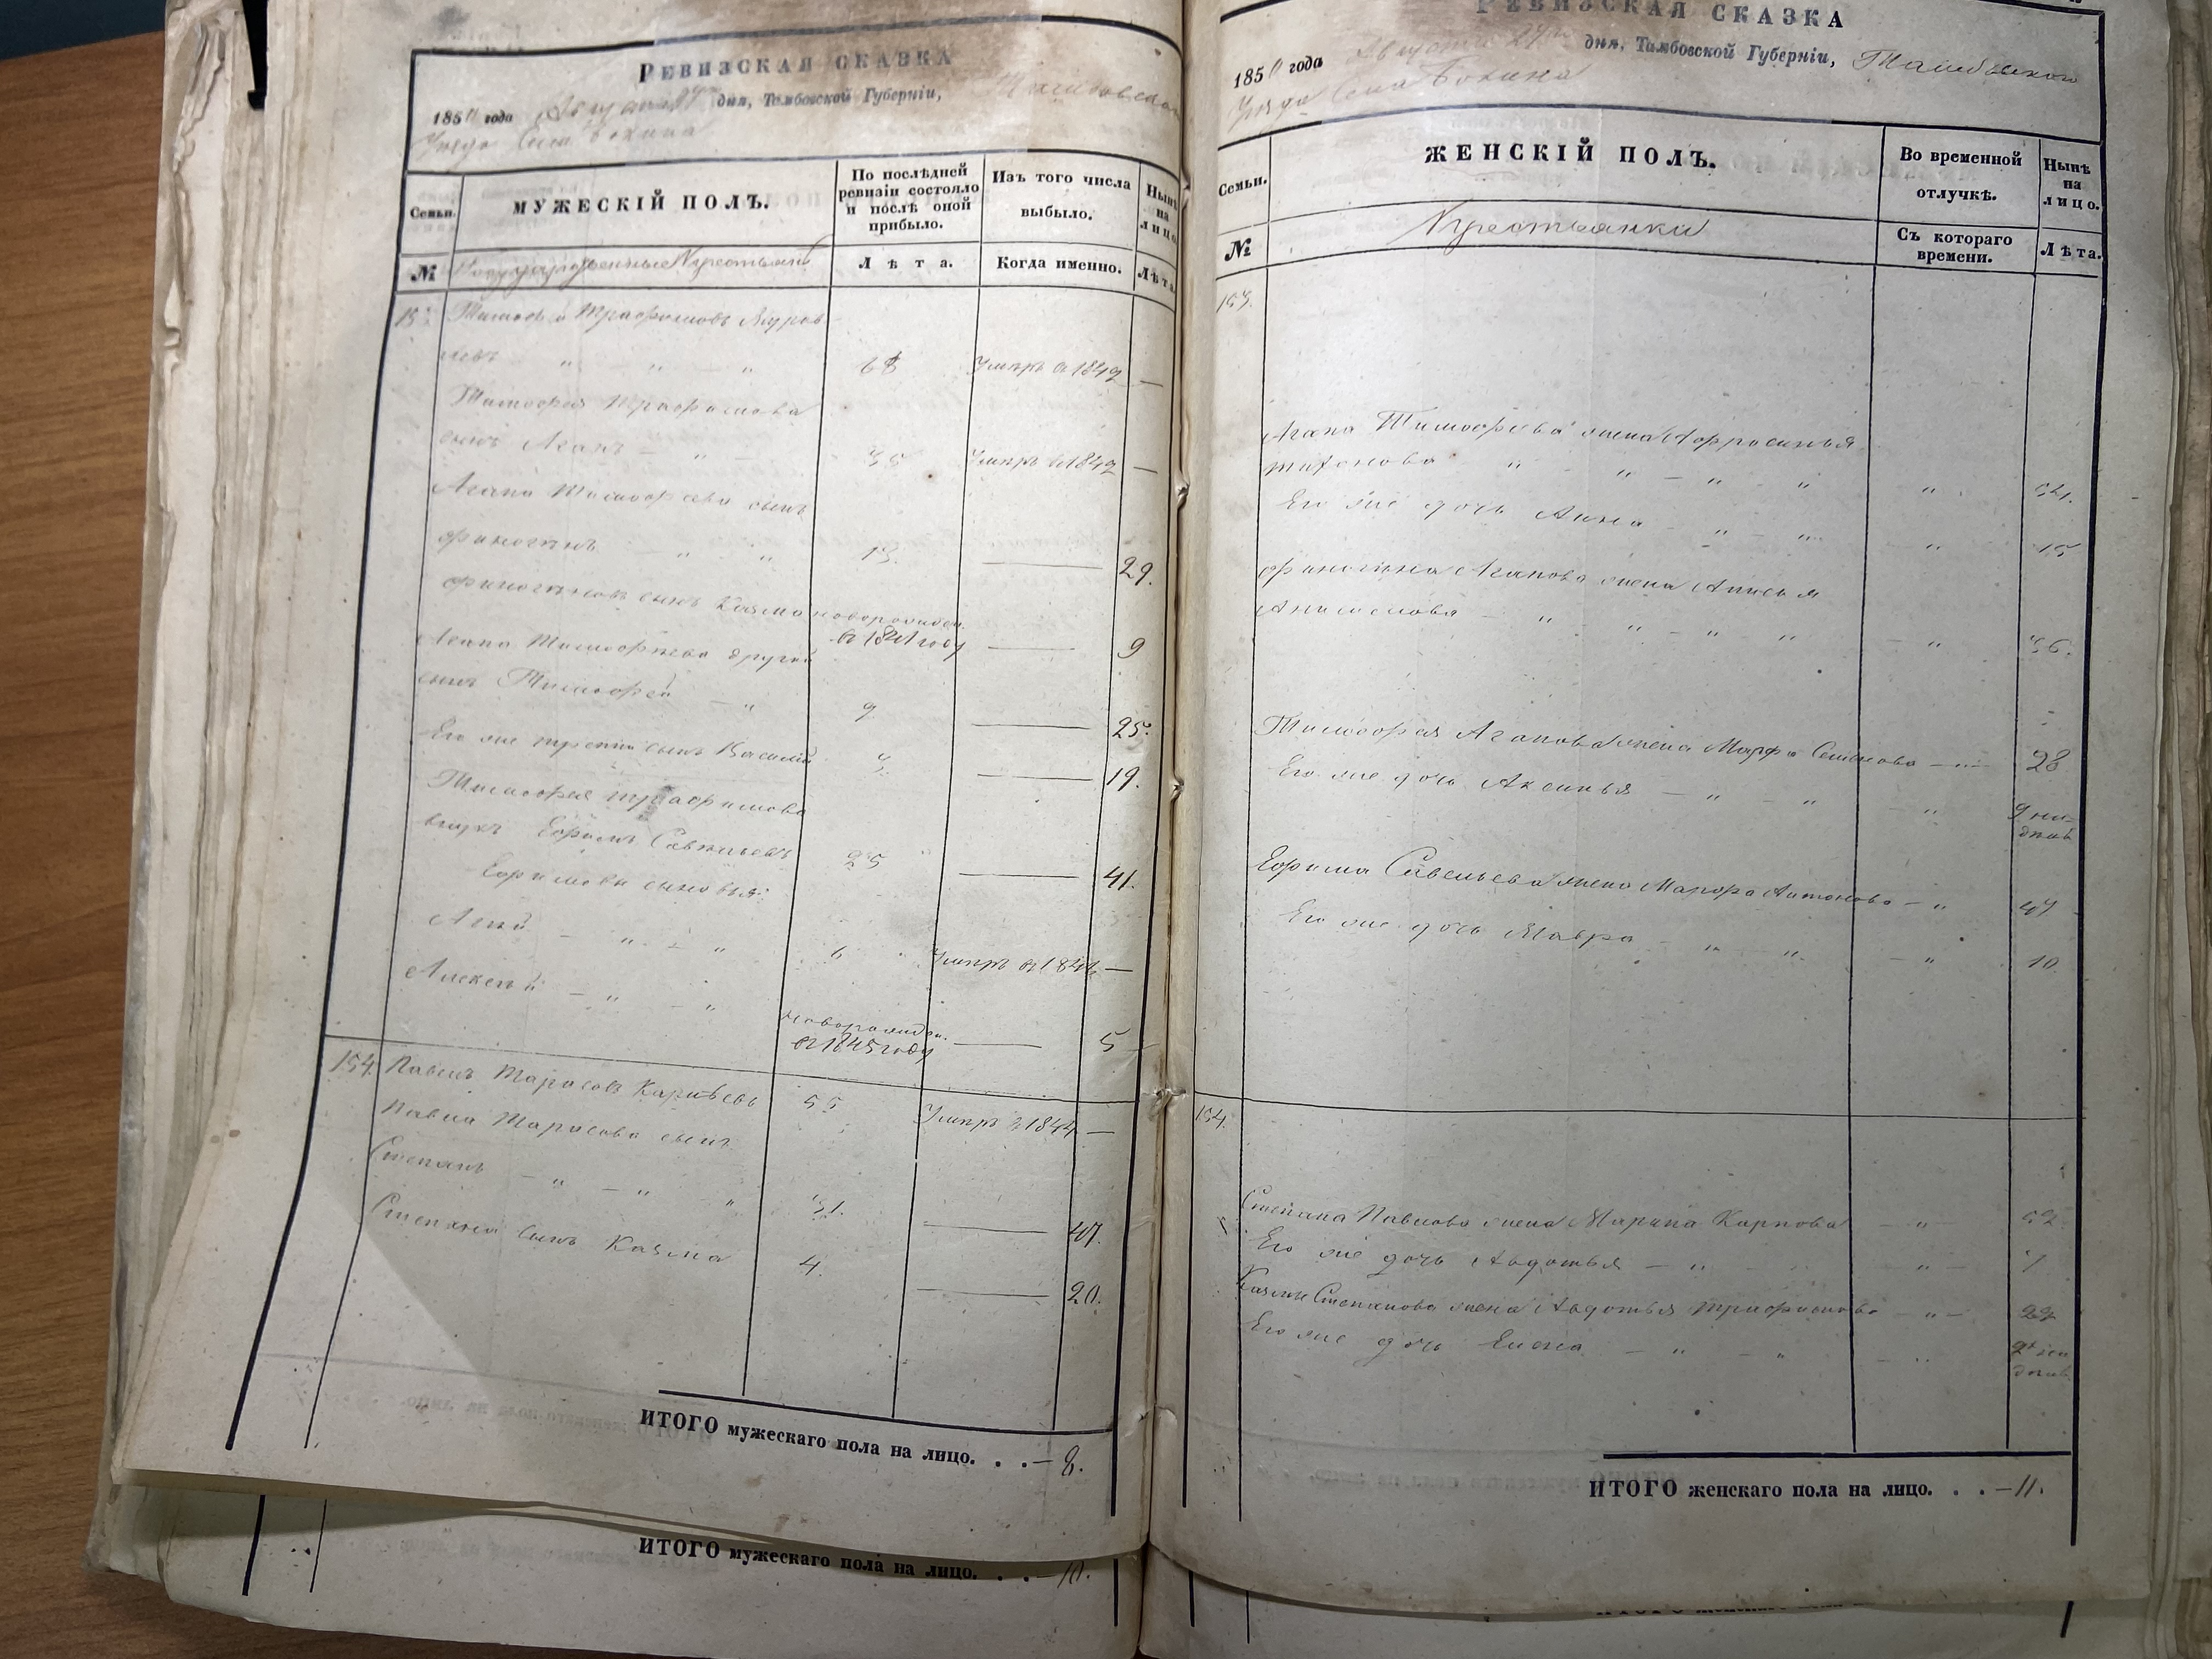 РЕВИЗСКАЯ СКАЗКА
1850 года Августа 29го дня, Тамбовской Губерніи, Тамбовскаго
Уѣзда Села
Семьи.
МУЖЕСКІЙ ПОЛЪ.
По послѣдней ревизіи состояло и послѣ оной прибыло.
Изъ того числа выбыло.
Нынѣ на лицо.
№
Государственные Крестьяне
Лѣта.
Когда именно.
Лѣта.
153
Тимофей Трафимовъ Журав-
левъ " " " 68 Умеръ въ 1842 —
Тимофея Трафимова
сынъ Агапъ — " — 35 Умеръ въ 1842 —
Агапа Тимофеева сынъ
Финогѣнъ " " 13. — 29.
Финогѣновъ сынъ Казма новорожден. въ 1841 году — 9
Агапа Тимофеева другой
сынъ Тимофей — " 9 — 25.
Его же третій сынъ Василій 3. — 19.
Тимофея Трафимова
внукъ Ефимъ Савельевъ 25 — 41.
Ефимовы сыновья:
Агѣй — " — " 6 Умеръ въ 1846 —
Алексѣй — " — " новорожден. въ 1845 году — 5
154. Павелъ Тарасовъ Карпѣевъ 55 Умеръ въ 1844 —
Павла Тарасова сынъ
Степанъ — " — " " 31. — 47.
Степана сынъ Казма 4. — 20.
ИТОГО мужескаго пола на лицо. . . — 8.
ИТОГО мужескаго пола на лицо. . . — 10.
РЕВИЗСКАЯ СКАЗКА
1850 года Августа 29го дня, Тамбовской Губерніи, Тамбовскаго
Уѣзда Села
Семьи.
ЖЕНСКІЙ ПОЛЪ.
Во временной отлучкѣ.
Нынѣ на лицо.
№
Крестьянки
Съ котораго времени.
Лѣта.
153.
Агапа Тимофеева жена Афросинья
Тихонова " " " " " 54.
Его же дочь Анна — " — " " 15
Финогѣна Агапова жена Анисья
Анисимова — " — " — " " — " 36.
Тимофея Агапова жена Марфа Семенова — " — 28
Его же дочь Аксинья — " — " " 9 недѣль
Ефима Савельева жена Марфа Антонова — " 47
Его же дочь Мавра — " " — " 10
154.
Степана Павлова жена Марина Карпова — " — 52
Его же дочь Авдотья — " — " — 7
Казмы Степанова жена Авдотья Трафимова " — 22
Его же дочь Елена — " — " — " 2 недѣль
ИТОГО женскаго пола на лицо. . . — 11.